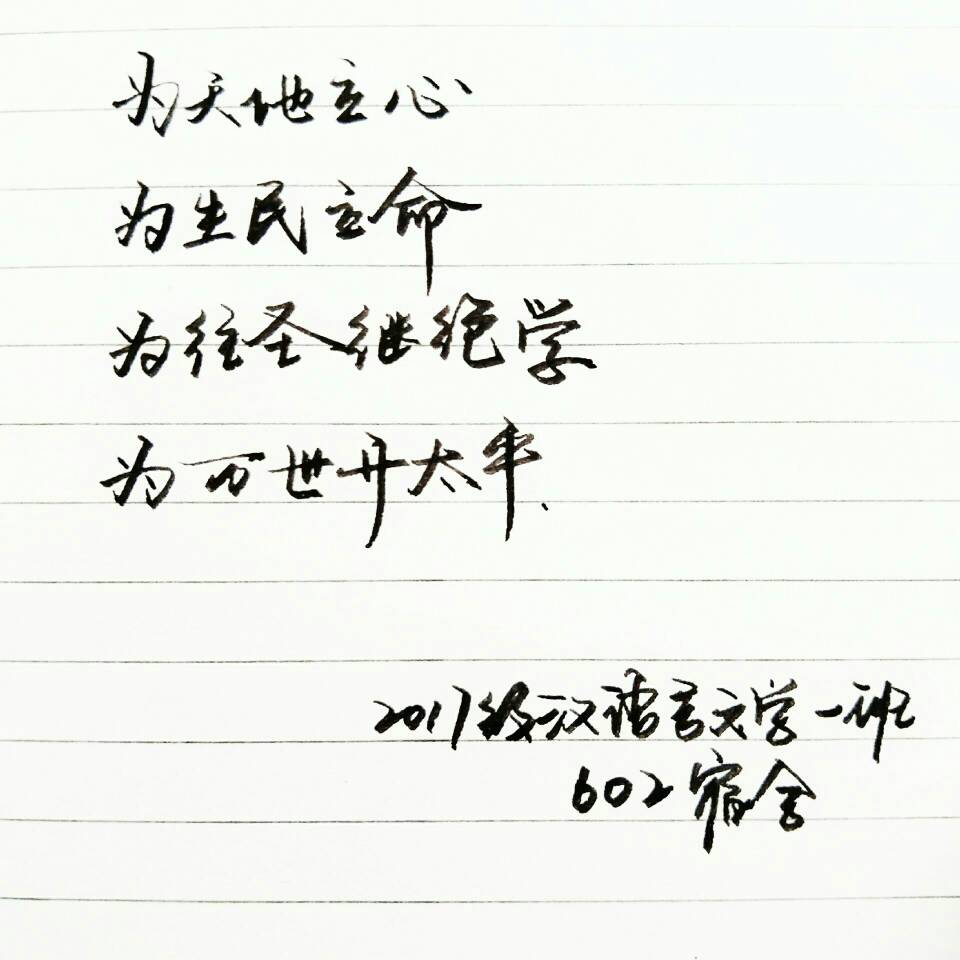 为天地立心
为生民立命
为往圣继绝学
为万世开太平、
2017级汉语言文学一班
602宿舍